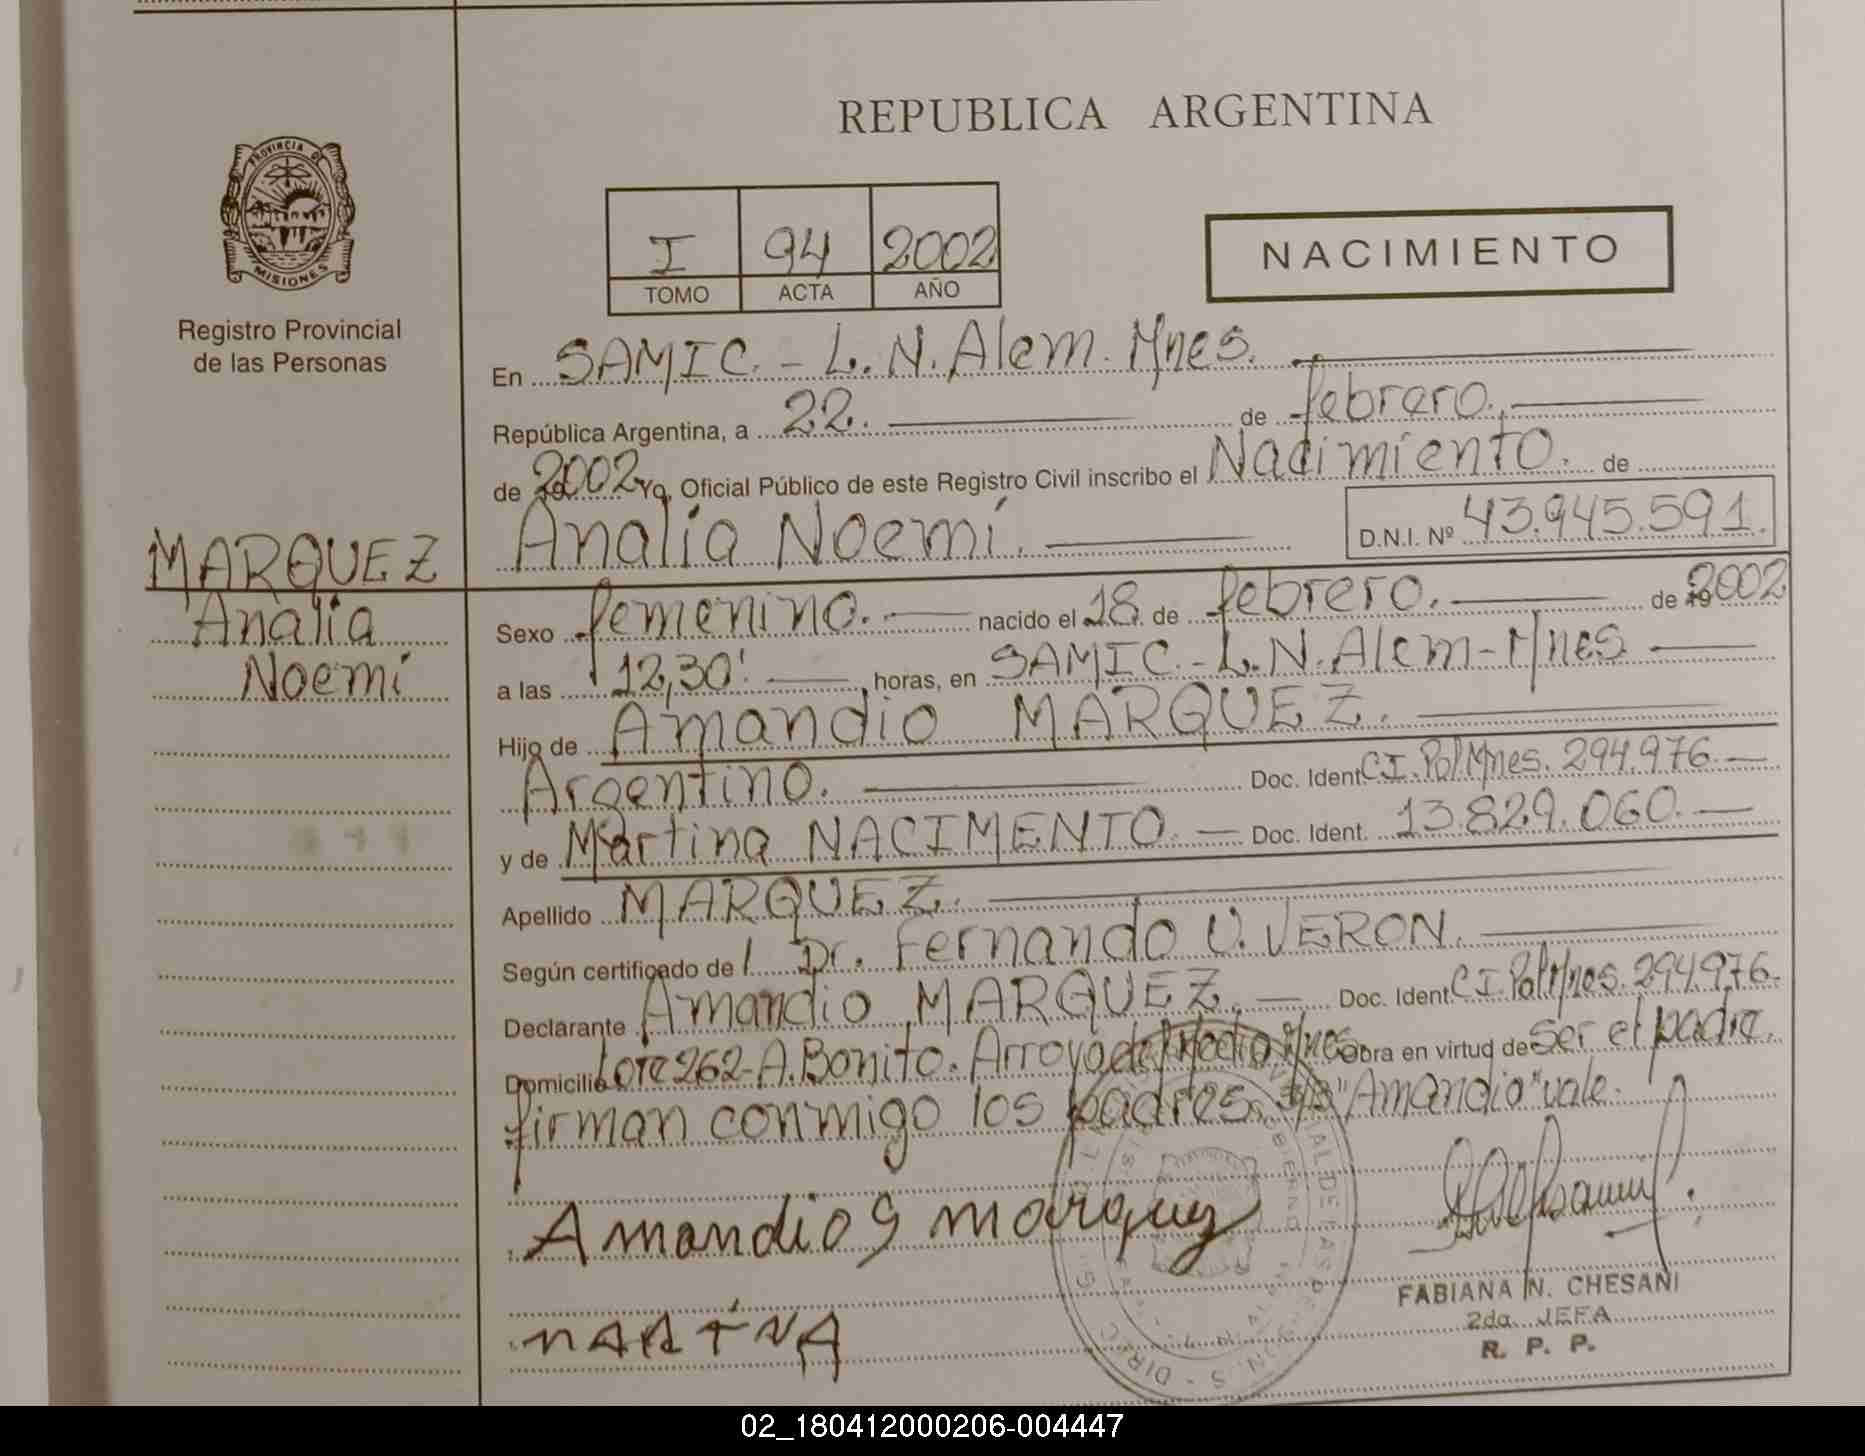 REPUBLICA ARGENTINA
PROVINCIA DE
MISIONES
Registro Provincial
de las Personas
I 94 2002
TOMO ACTA AÑO
NACIMIENTO
En SAMIC.- L.N.Alem.Mnes.
República Argentina, a 22. de febrero.
de 2002 Yo, Oficial Público de este Registro Civil inscribo el Nacimiento. de
Analia Noemí. D.N.I. Nº 43.945.591.
MARQUEZ
Analia
Noemí
Sexo femenino. nacido el 18 de febrero. de 2002
a las 12,30' horas, en SAMIC.-L.N.Alem-Mnes
Hijo de Amandio MARQUEZ.
Argentino. Doc. Ident. CI.Pol.Mnes. 294.976.
y de Martina NACIMENTO. Doc. Ident. 13.829.060.
Apellido MARQUEZ.
Según certificado de Dr. Fernando U. VERON.
Declarante Amandio MARQUEZ. Doc. Ident. CI.Pol.Mnes.294976.
Domicilio Lote 262-A.Bonito.Arroyo del Medio.Mnes Obra en virtud de ser el padre.
firman conmigo los padres. S/B "Amandio" vale.
Amandio G marquez
MARTINA
FABIANA N. CHESANI
2da. JEFA
R. P. P.
02_180412000206-004447